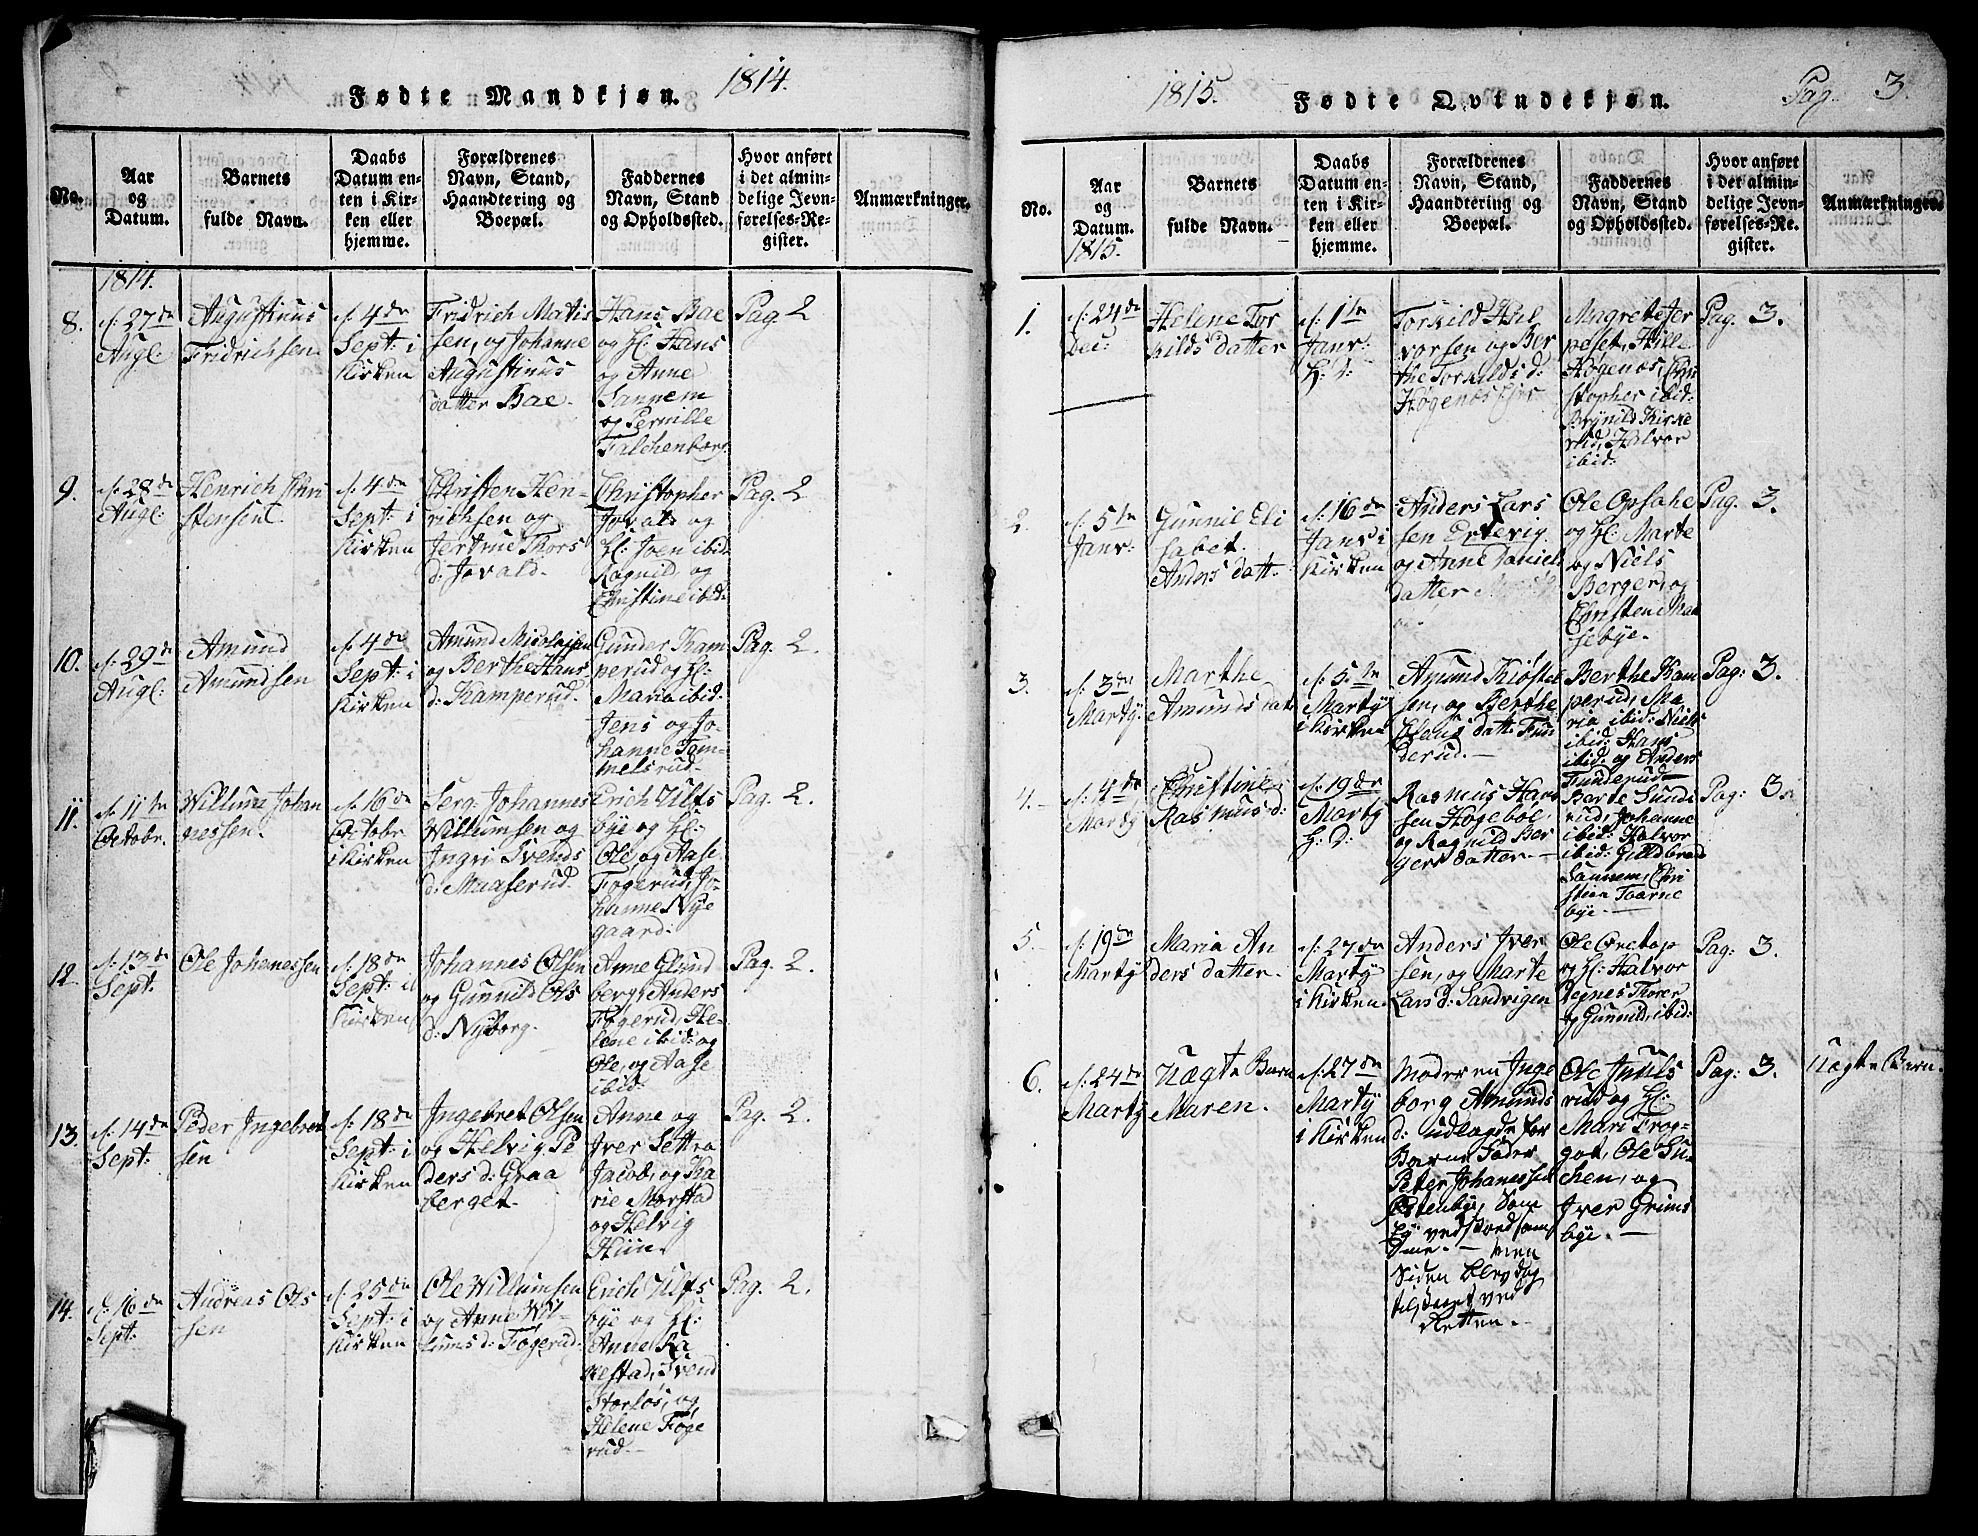 Fødte Mandkjøn. 1814.
No.
Aar
og
Datum.
Barnets
fulde Navn.
Daabs
Datum en-
ten i Kir-
ken eller
hjemme.
Forældrenes
Navn, Stand,
Haandtering og
Boepæl.
Faddernes
Navn, Stand
og Opholdssted.
Hvor anført
i det almin-
delige Jevn-
førelses-Re-
gister.
Anmærkninger.
1814.
8.
d. 27de
Augl:
Augustinus
Fridrichsen
d. 4de
Sept: i
Kirken
Fridrich Matis
sen, og Johanne
Augustinus
datter Bae.
Hans Bae
og H: Hans
og Anne
Sannem
og Pernille
Falchenberg
Pag. 2
9.
d. 28de
Augl:
Henrich Chri
stensen
d. 4de
Sept: i
Kirken
Christen Hen-
richsen og
Jertrue Thors
d: Jovald.
Christopher
Jovald og
H: Joen ibid:
Ragnild, og
Christine ibid:
Pag. 2
10.
d. 29de
Augl:
Amund
Amundsen
d. 4de
Sept: i
Kirken
Amund Nicolajsen
og Berthe Hans
d: Kamperud.
Gunder Kam
perud og H:
Maria ibid:
Jens og Jo-
hanne Tom-
melsrud
Pag. 2.
11.
d. 11te
Octobr.
Willum Johan
nessen.
d. 16de
Octobr
i Kirken
Serg: Johannes
Willumsen og
Ingri Svends
d: Maaserud.
Erich Ulfs
bye og H:
Ole, og Aase
Fogerud, Jo-
hanne Nye
gaard:
Pag. 2.
12.
d. 13de
Sept:
Ole Johenessen
d. 18de
Sept: i
Kirken
Johannes Olsen
og Gunnild Ols
d: Nyborg.
Anne Glund
berg, Anders
Fogerud, He-
lene ibid: og
Ole, og Aase
ibid:
Pag. 2.
13.
d. 14de
Sept:
Peder Ingebret
sen
d. 18de
Sept: i
Kirken
Ingebret Olsen
og Helvig Pe
ders d: Graa
berget.
Anne og
Iver Settra
Jacob, og Ka
rie Morstad
og Helvig
Hiin.
Pag. 2.
14.
d. 16de
Sept:
Andreas Ols
sen
d. 25de
Sept: i
Kirken
Ole Willumsen
og Anne Wil-
lums d: Fogerud.
Erich Ulfs
bye og H:
Anne Ra
kestad, Svend
Storløs, og
Helene Foge
rud.
Pag. 2.
1815. Fødte Qvindekjøn. Pag. 3.
No.
Aar
og
Datum.
1815.
Barnets
fulde Navn.
Daabs
Datum en-
ten i Kir-
ken eller
hjemme.
Forældrenes
Navn, Stand,
Haandtering og
Boepæl.
Faddernes
Navn, Stand
og Opholdssted.
Hvor anført
i det almin-
delige Jevn-
førelses-Re-
gister.
Anmærkninger.
1.
d. 24de
Dec:
Helene Tor
kilds datter
d. 1te
Janr:
H: D:
Torkild Hal
vorsen og Ber
the Torkilds d:
Høgenos
Magrete
Hille
Høgenos, Chri
stopher ibid:
Brynild Kirke
rud, Halvor
ibid:
Pag. 3.
2.
d. 5te
Janr:
Gunnil Eli
sabet
Anders datt:
d. 16de
Janr i
Kirken
Anders Lars
sen Ertevig
og Anne Daniels
datter
Ole Opsahe
og H: Marte
og Niels
Berger, og
Christen Maa
sebye.
Pag. 3.
3.
d. 3de
Marty.
Marthe
Amunds dat
d. 5te
Marty
i Kirken
Amund Kiøstel
sen, og Berthe
Claus datt: Fun
derud.
Berthe Kam
perud, Ma
ria ibid: Niels
ibid: Hans
ibid: og Anders
Funderud
Pag: 3.
4.
d. 4de
Marty
Christine
Rasmus d:
d. 19de
Marty
H: D:
Rasmus Han
sen Høgeboe,
og Ragnild Ber
gers datter.
Barte Sunde
rud, Johanne
ibid: Halvor
ibid: Guldbrand
Sannem, Chri
stian Taarne
bye.
Pag: 3.
5.
d. 19de
Marty
Maria An
ders datter.
d. 27de
Marty
i Kirken.
Anders Iver
sen, og Marte
Lars d: Sandvigen
Ole Oretop
og H: Halvor
Degnes Thorer
og Gunnild, ibid:
Pag: 3.
6.
d. 24de
Marty
Uægte Barn
Maren.
d. 27de
Marty
i Kirken
Moderen Inge
borg Amunds
d: udlagde for
Barne Fader
Peter Johanessen
Østenbye, Som
Ey vedstod sam
me. — Men
Siden blev dog
tilstaaet ved
Retten.
Ole Juuls
rud og H:
Mari Frog-
got, Ole Su-
chen, og
Iver Grims
bye.
Pag: 3.
Uægte Barn.